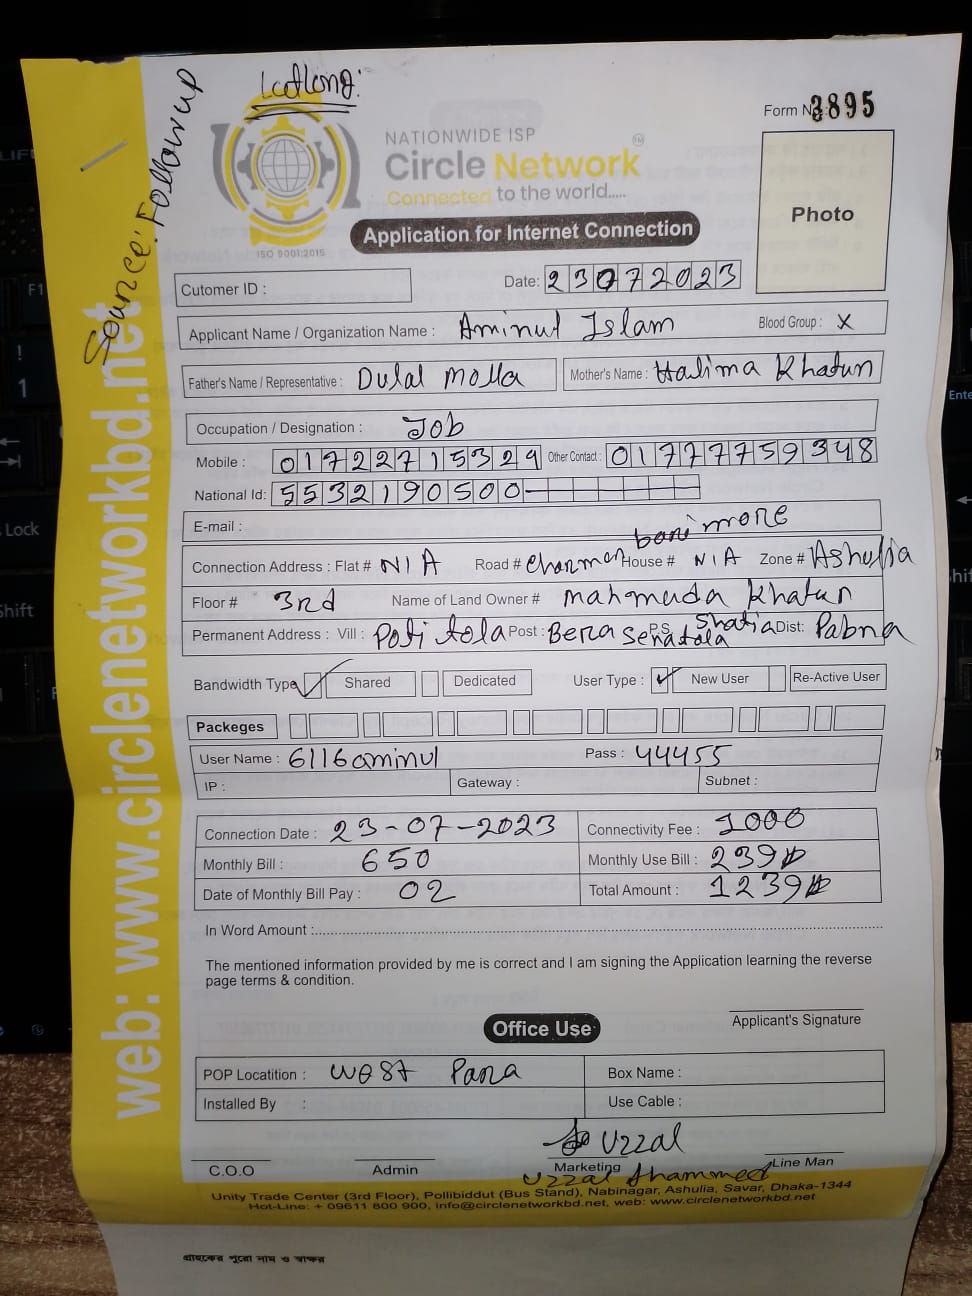 Lcotlong:
Source: Followup
Form No 3895
NATIONWIDE ISP
Circle Network
TM
Connected to the world.....
ISO 9001:2015
Photo
Application for Internet Connection
Cutomer ID :
Date: 23072023
Applicant Name / Organization Name : Aminul Islam Blood Group : X
Father's Name / Representative : Dulal Molla Mother's Name : Halima Khatun
Occupation / Designation : Job
Mobile : 01722715329 Other Contact : 01777759348
National Id: 5532190500
E-mail :
Connection Address : Flat # N/A Road # Charman bari more House # N/A Zone # Ashulia
Floor # 3rd Name of Land Owner # Mahmuda Khatun
Permanent Address : Vill : Poti tola Post : Bera Senatola P.S Shatia Dist: Pabna
Bandwidth Type Shared Dedicated User Type : New User Re-Active User
Packeges
User Name : 6116aminul Pass : 44455
IP : Gateway : Subnet :
Connection Date : 23-07-2023 Connectivity Fee : 1000
Monthly Bill : 650 Monthly Use Bill : 239
Date of Monthly Bill Pay : 02 Total Amount : 1239
In Word Amount :
The mentioned information provided by me is correct and I am signing the Application learning the reverse
page terms & condition.
Applicant's Signature
Office Use
POP Locatition : West Para Box Name :
Installed By : Use Cable :
Uzzal
C.O.O Admin Marketing Line Man
Uzzal Ahammed
Unity Trade Center (3rd Floor), Pollibiddut (Bus Stand), Nabinagar, Ashulia, Savar, Dhaka-1344
Hot-Line: + 09611 800 900, info@circlenetworkbd.net, web: www.circlenetworkbd.net
গ্রাহকের পুরো নাম ও স্বাক্ষর
web: www.circlenetworkbd.net